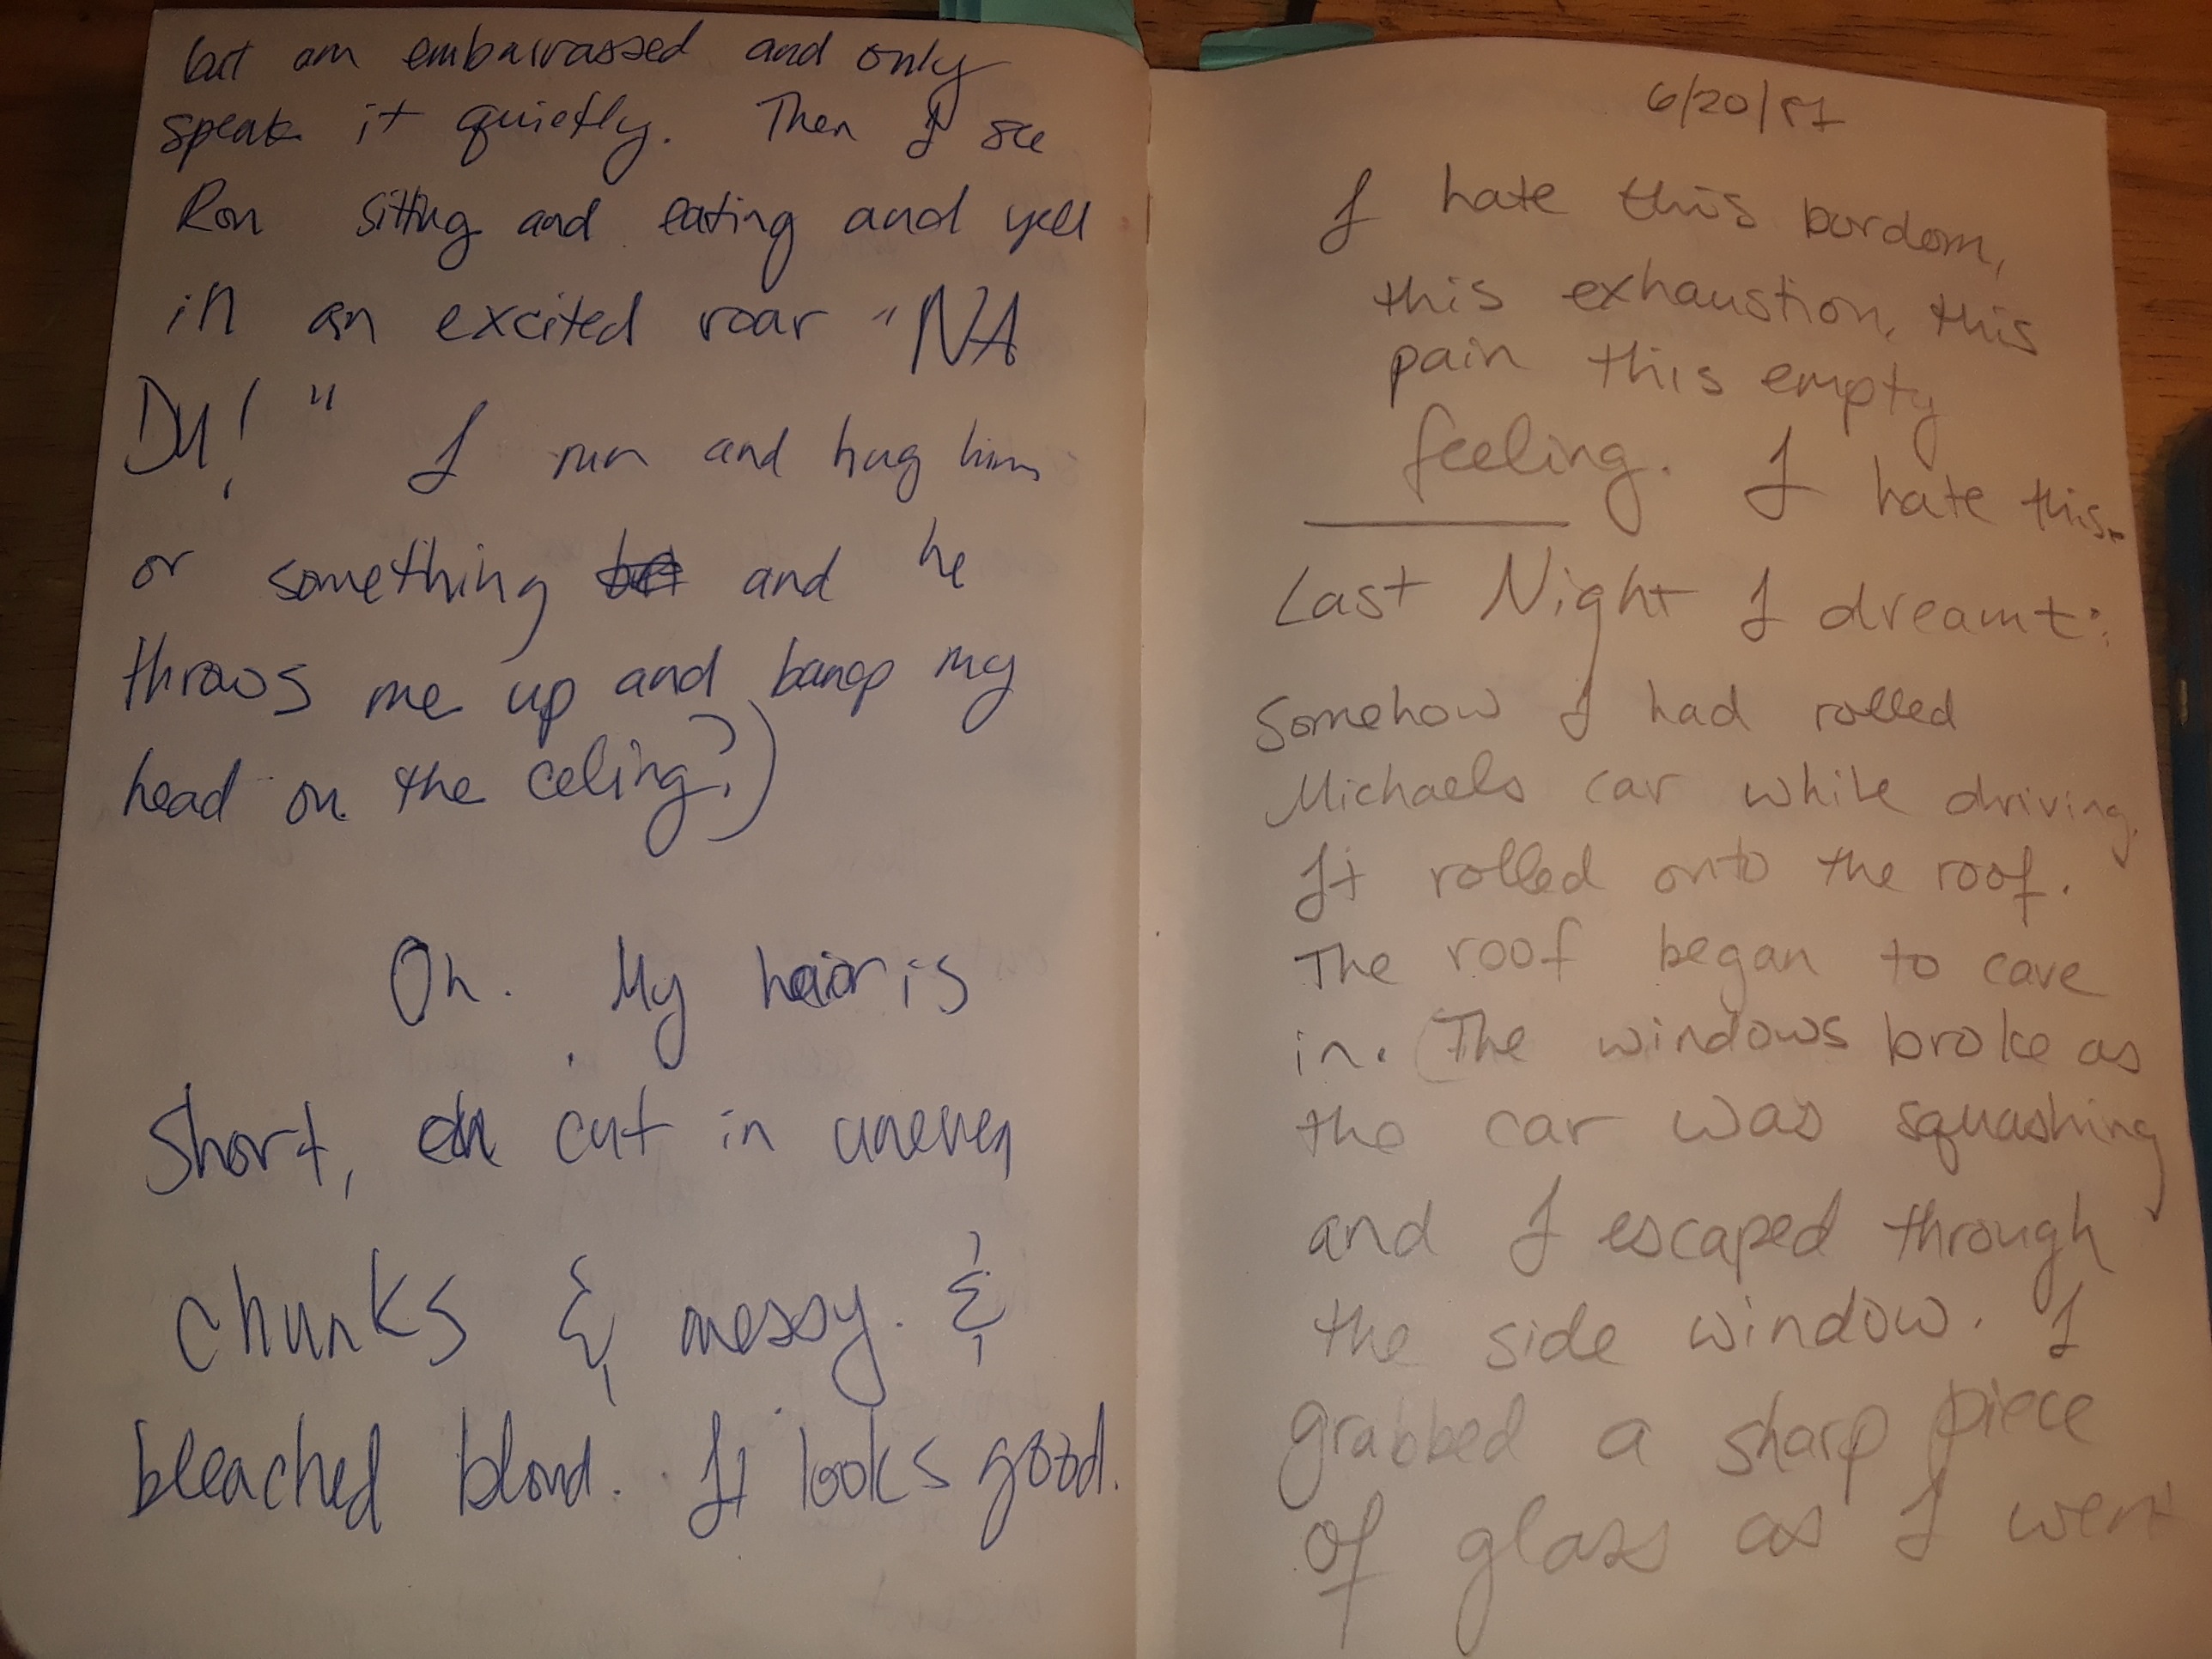 but am embarrassed and only
speak it quietly. Then I see
Ron sitting and eating and yell
in an excited roar "NA
DY!" I run and hug him
or something and he
throws me up and bangs my
head on the celing?)
Oh. My hair is
short, cut in uneven
chunks & messy. &
bleached blond. It looks good.
6/20/87
I hate this bordom,
this exhaustion, this
pain this empty
feeling. I hate this.
Last Night I dreamt:
Somehow I had rolled
Michaels car while driving.
It rolled onto the roof.
The roof began to cave
in. (The windows broke as
the car was squashing
and I escaped through
the side window. I
grabbed a sharp piece
of glass as I went